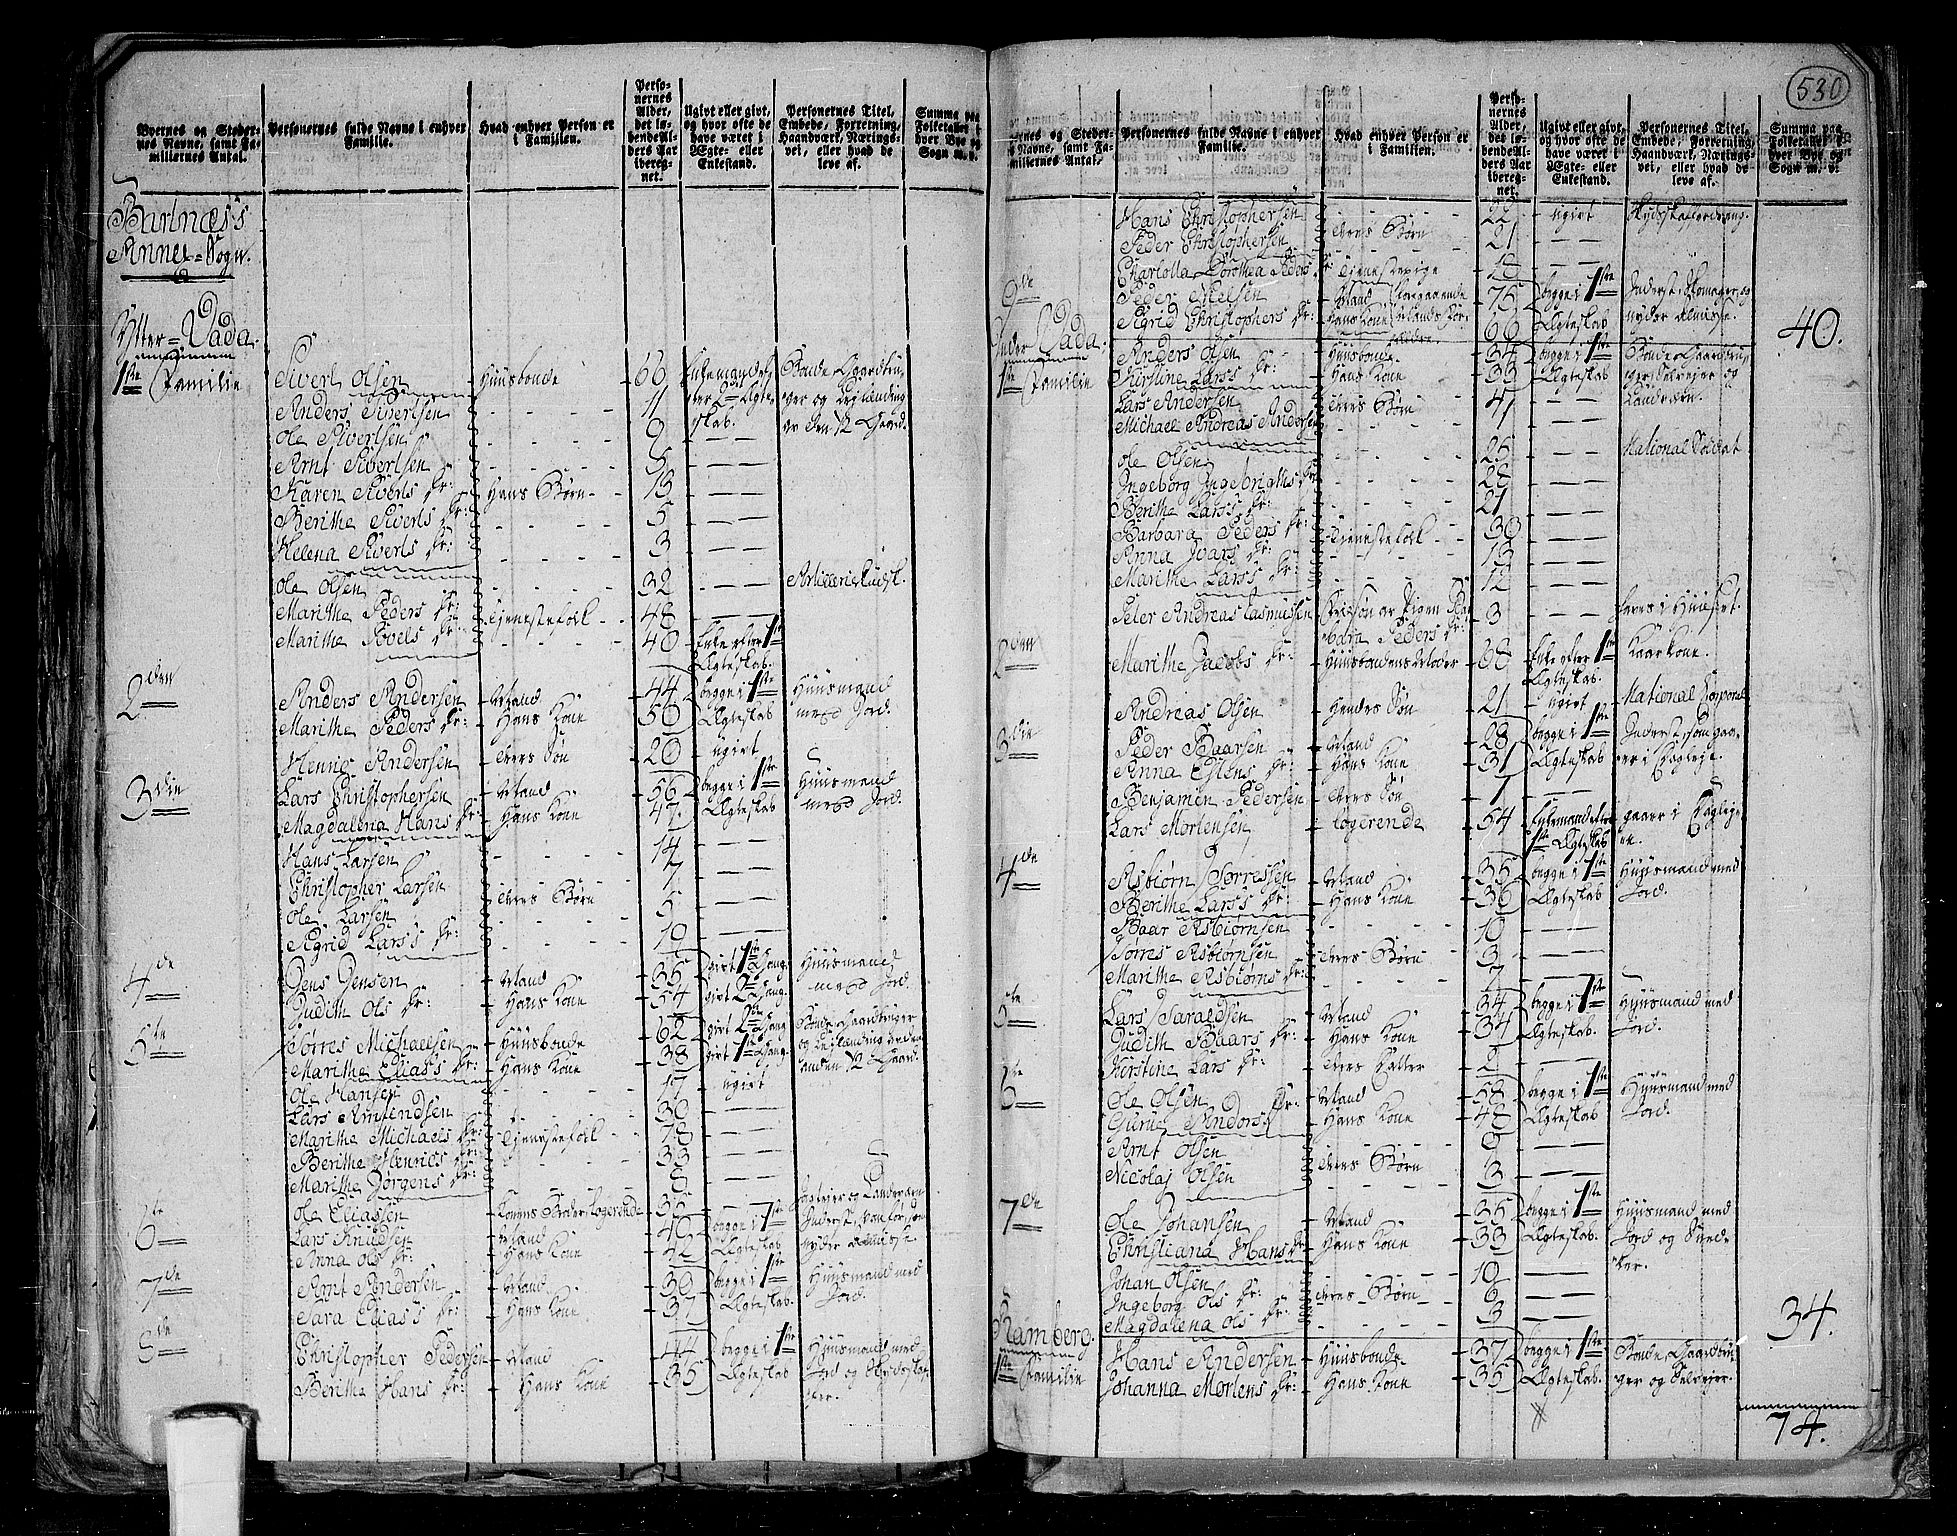 530
Byernes og Steder-
nes Navne, samt Fa-
miliernes Antal.
Personernes fulde Navne i enhver
Familie.
Hvad enhver Person er
i Familien.
Perso-
nernes
Alder,
det lø-
bende Al-
ders Aar
iberegn-
net.
Ugivt eller givt,
og hvor ofte de
have været i
Ægte- eller
Enkestand.
Personernes Titel,
Embede, Forretning,
Haandværk, Nærings-
vei, eller hvad de
leve af.
Summa paa
Folketallet i
hver Bye og
Sogn m. v.
Bartnæs's
Annex-Sogn.
Ytter-Vada.
1ste Familie
Sivert Olsen - Huusbonde - 66 Enkemand ef- Bonde Gaardbru-
Anders Sivertsen - 11 ter 2den Ægte- ger og Leilending
Ole Sivertsen - 9 skab. av den 1/2 Gaard.
Arnt Sivertsen - 5
Karen Siverts Dr: Hans Børn - 13
Berithe Siverts Dr: - 5
Helena Siverts Dr: - 3
Ole Olsen - 32 Artillerie Kudsk.
Marithe Peders Dr: Tjenestefolk - 48
Marithe Povels Dr: - 40 Enke efter 1ste
Ægteskab.
2den
Anders Andersen - Mand - 44 begge i 1ste Huusmand
Marithe Peders Dr: - Hans Kone - 50 Ægteskab med Jord.
Henric Andersen - deres Søn - 20 - ugivt
3die
Lars Christophersen - Mand - 56 begge i 1ste Huusmand
Magdalena Hans Dr: - Hans Kone - 47 Ægteskab med Jord.
Hans Larsen - 14
Christopher Larsen - 7
Ole Larsen - deres Børn - 5
Sigrid Lars's Dr: - 10
4de
Jens Jensen - Mand - 35 givt 1ste Gang Huusmand
Judith Ols Dr: - Hans Kone - 54 givt 2den Gang. med Jord.
5te
Torres Michaelsen - Huusbonde - 62 givt 2den Gang Bonde Gaardbruger
Marithe Elias's Dr: - Hans Kone - 38 givt 1ste Gang og Leilending av den
Ole Hansen - 17 - ugivt anden 1/2 Gaard.
Lars Amundsen - 30
Marithe Michaels Dr: - Tjenestefolk - 78
Berithe Henrics Dr: - 33
Marithe Jørgens Dr: - 8
Ole Eliassen - Konens Broder logerende - 36
6te
Lars Knudsen - Mand - 40 begge i 1ste
Anna Ols Dr: - Hans Kone - 42 Ægteskab nyder Almisse
7de
Arnt Andersen - Mand - 30 begge i 1ste Huusmand med
Sara Elias's Dr: - Hans Kone - 37 Ægteskab. Jord.
8de
Christopher Pedersen - Mand - 44 begge i 1ste Huusmand med
Berithe Hans Dr: - Hans Kone - 35 Ægteskab Jord og
Byernes og Steder-
nes Navne, samt Fa-
miliernes Antal.
Personernes fulde Navne i enhver
Familie.
Hvad enhver Person er
i Familien.
Perso-
nernes
Alder,
det lø-
bende Al-
ders Aar
iberegn-
net.
Ugivt eller givt,
og hvor ofte de
have været i
Ægte- eller
Enkestand.
Personernes Titel,
Embede, Forretning,
Haandværk, Nærings-
vei, eller hvad de
leve af.
Summa paa
Folketallet i
hver Bye og
Sogn m. v.
Hans Christophersen - 22 - ugivt
Peder Christophersen - deres Børn - 21
Charlotta Dorothea Peders Dr: - Tjenestepige - 18
9de
Peder Nielsen - Mand - 75 begge i 1ste Inderst, Skomager, og
Sigrid Christophers Dr: - Hans Kone - 66 Ægteskab nyder Almisse. 40.
Inder Vada.
1ste Familie
Anders Olsen - Huusbonde - 34 begge i 1ste Bonde Gaardbru-
Kirstine Lars's Dr: - Hans Kone - 33 Ægteskab ger, Selveier og
Lars Andersen - deres Børn - 4 Landværn.
Michael Andreas Andersen - 1
Ole Olsen - 25 National Soldat
Ingeborg Ingebrigths Dr: - 28
Berithe Lars's Dr: - 21
Barbara Peders Dr: - Tjenestefolk - 30
Anna Ivars Dr: - 13
Marithe Lars's Dr: - 12
Peter Andreas Rasmussen - 3 - leves i Huuset.
bara Peders Dr:
2den
Marithe Jacobs Dr: - Huusbondens Moder - 68 Enke efter 1ste Kaarkone.
Ægteskab.
Andreas Olsen - Hendes Søn - 21 - ugivt National Corporal
3die
Peder Baarsen - Mand - 28 begge i 1ste Inderst, som gaa-
Anna Estens Dr: - Hans Kone - 31 Ægteskab er i Dagleje.
Benjamin Pedersen - deres Søn - 1
Lars Mortensen - logerende - 54 Enkemand efter gaaer i Daglej-
1ste Ægteskab e.
4de
Asbiørn Torressen - Mand - 35 begge i 1ste Huusmand med
Berithe Lars's Dr: - Hans Kone - 36 Ægteskab Jord.
Baar Asbiørnsen - 10
Torres Asbiørnsen - deres Børn - 3
Marithe Asbiørns Dr: - 7
5te
Lars Taraldsen - Mand - 34 begge i 1ste Huusmand med
Judith Baars Dr: - Hans Kone - 34 Ægteskab. Jord.
Kirstine Lars Dr: - deres Datter - 2
6te
Ole Olsen - Mand - 58 begge i 1ste Huusmand med
Gurue Anders's Dr: - Hans Kone - 48 Ægteskab Jord.
Arnt Olsen - 9
Nicolaj Olsen - deres Børn - 3
7de
Ole Johansen - Mand - 35 begge i 1ste Huusmand med
Christiana Hans Dr: - Hans Kone - 33 Ægteskab. Jord og Sned-
Johan Olsen - 10 ker.
Ingeborg Ols Dr: - deres Børn - 6
Magdalena Ols Dr: - 3 34.
Ramberg.
1ste Familie
Hans Andersen - Huusbonde - 37 begge i 1ste Bonde, Gaardbru-
Johanna Mortens Dr: - Hans Kone - 35 Ægteskab. ger og Selveier.
74.